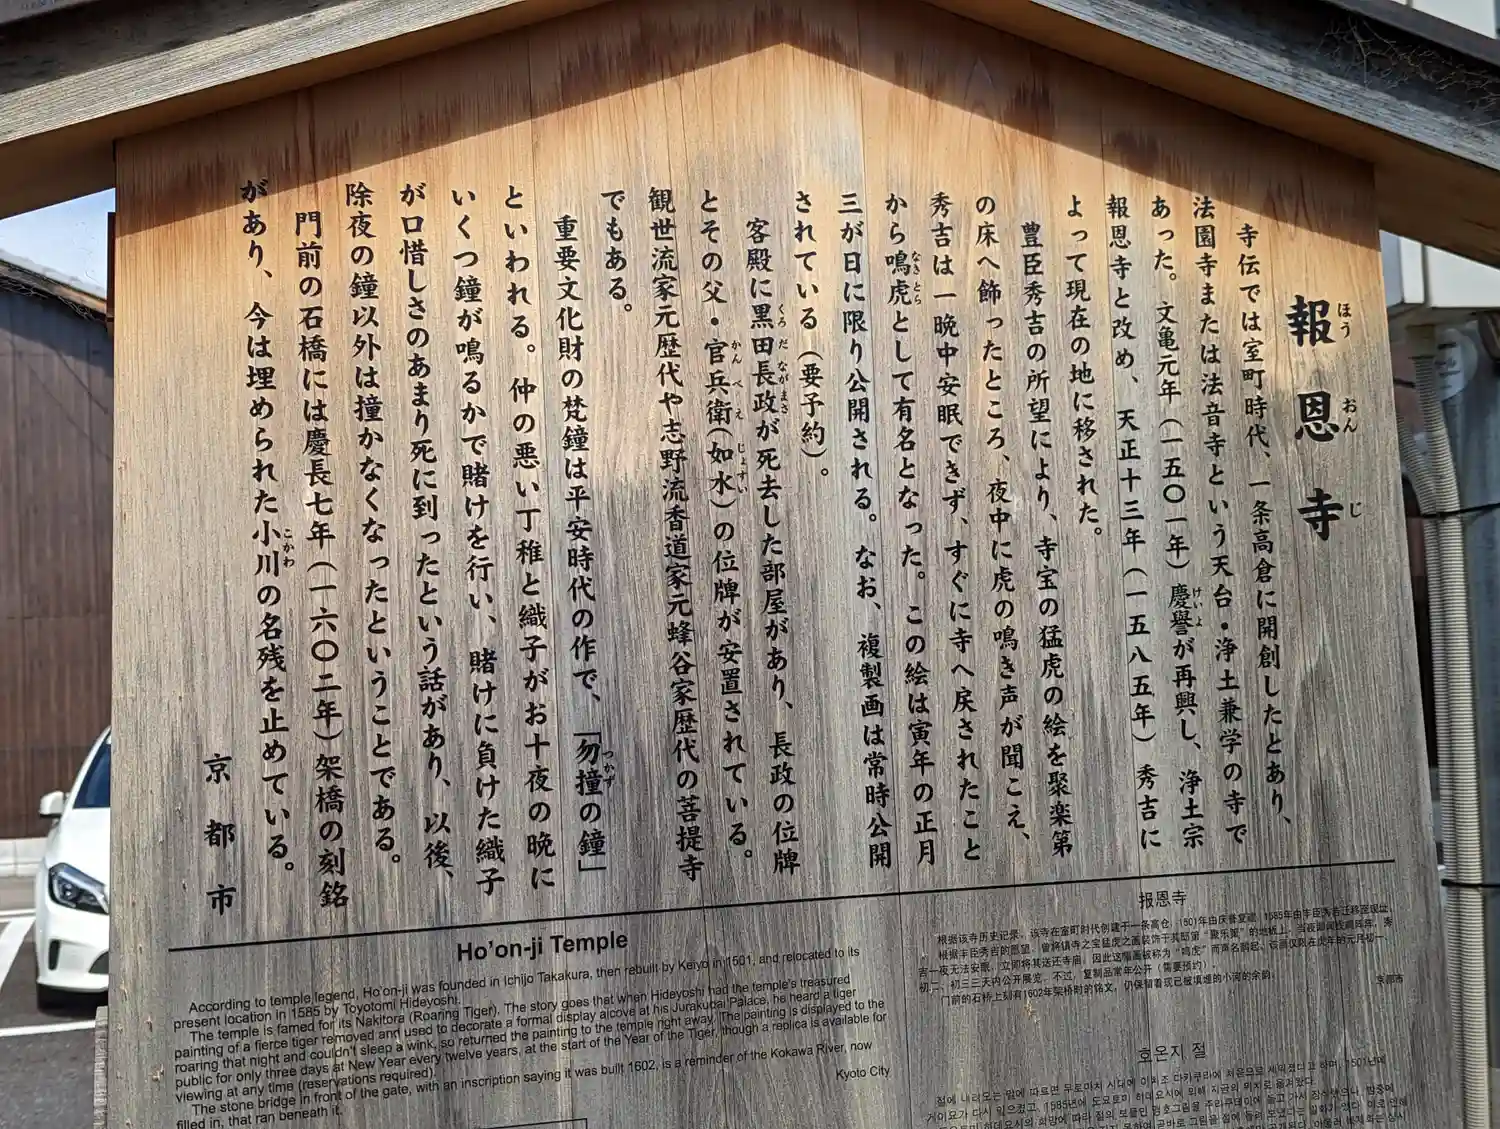 報恩寺
ほうおんじ
寺伝では室町時代、一条高倉に開創したとあり、
法園寺または法音寺という天台・浄土兼学の寺で
あった。文亀元年（一五〇一年）慶誉が再興し、浄土宗
けいよ
報恩寺と改め、天正十三年（一五八五年）秀吉に
よって現在の地に移された。
豊臣秀吉の所望により、寺宝の猛虎の絵を聚楽第
の床へ飾ったところ、夜中に虎の鳴き声が聞こえ、
秀吉は一晩中安眠できず、すぐに寺へ戻されたこと
から鳴虎として有名となった。この絵は寅年の正月
なきとら
三が日に限り公開される。なお、複製画は常時公開
されている（要予約）。
客殿に黒田長政が死去した部屋があり、長政の位牌
くろだながまさ
とその父・官兵衛（如水）の位牌が安置されている。
かんべえ じょすい
観世流家元歴代や志野流香道家元蜂谷家歴代の菩提寺
でもある。
重要文化財の梵鐘は平安時代の作で、「勿撞の鐘」
つかず
といわれる。仲の悪い丁稚と織子がお十夜の晩に
いくつ鐘が鳴るかで賭けを行い、賭けに負けた織子
が口惜しさのあまり死に到ったという話があり、以後、
除夜の鐘以外は撞かなくなったということである。
門前の石橋には慶長七年（一六〇二年）架橋の刻銘
があり、今は埋められた小川の名残を止めている。
こかわ
京都市
Ho'on-ji Temple
According to temple legend, Ho'on-ji was founded in Ichijo Takakura, then rebuilt by Keiyo in 1501, and relocated to its
present location in 1585 by Toyotomi Hideyoshi.
The temple is famed for its Nakitora (Roaring Tiger). The story goes that when Hideyoshi had the temple's treasured
painting of a fierce tiger removed and used to decorate a formal display alcove at his Jurakudai Palace, he heard a tiger
roaring that night and couldn't sleep a wink, so returned the painting to the temple right away. The painting is displayed to the
public for only three days at New Year every twelve years, at the start of the Year of the Tiger, though a replica is available for
viewing at any time (reservations required).
The stone bridge in front of the gate, with an inscription saying it was built 1602, is a reminder of the Kokawa River, now
filled in, that ran beneath it.
Kyoto City
报恩寺
根据该寺历史记录，该寺在室町时代创建于一条高仓，1501年由庆誉复建，1585年由丰臣秀吉迁移至现址。
根据丰臣秀吉的愿望，曾将镇寺之宝猛虎之画装饰于其邸第“聚乐第”的地板上，当夜即闻虎啸阵阵，秀
吉一夜无法安眠，立即将其送还寺庙，因此这幅画被称为“鸣虎”而声名鹊起。该画仅限在虎年的元月初一、
初二、初三三天内公开展览。不过，复制品常年公开（需要预约）。
门前的石桥上刻有1602年架桥时的铭文，仍保留着现已被填埋的小河的余韵。
京都市
호온지 절
절에 내려오는 말에 따르면 무로마치 시대에 이치조 다카쿠라에 처음으로 세워졌다고 하며, 1501년에
게이요가 다시 일으켰고, 1585년에 도요토미 히데요시에 의해 지금의 위치로 옮겨졌다.